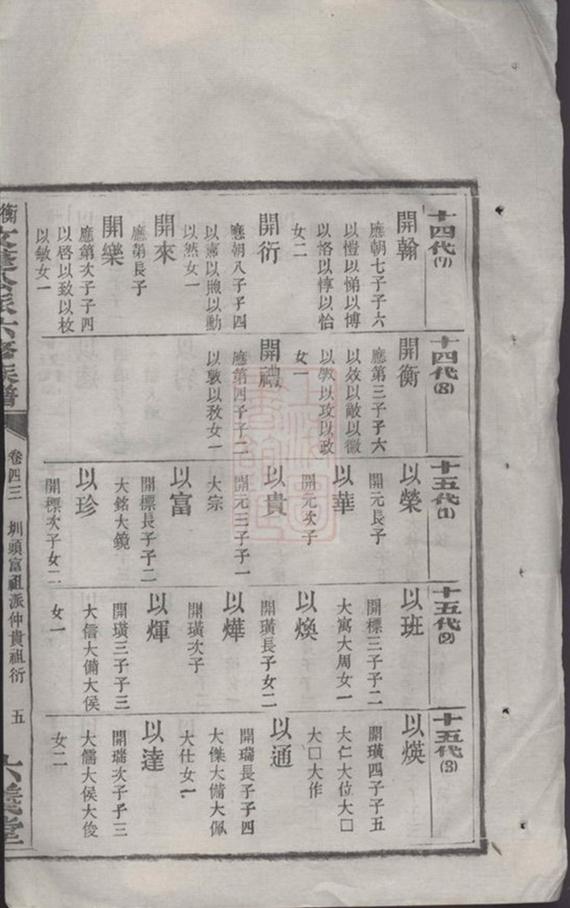 十四代(7)
開翰
應朝七子子六
以愷以悌以博
以恪以惇以恰
女二
開衍
應朝八子子四
以燾以煦以勳
以然女一
開來
應第長子
開樂
應第次子子四
以啓以致以枚
以敏女一
十四代(8)
開衡
應第三子子六
以效以敞以徽
以敩以攻以政
女一
開
應第四子子二
以敦以敄女一
十五代(1)
以榮
開元長子
以華
開元次子
以貴
開元三子子一
大宗
以富
開標長子子二
大銘大鏡
以珍
開標次子女二
十五代(2)
以班
開標三子子二
大寓大周女一
以煥
開璜長子女二
以燁
開璜次子
以煇
開璜三子子三
大信大備大侯
女一
十五代(3)
以煐
開璜四子子五
大仁大位大□
大□大作
以通
開瑞長子子四
大傑大備大佩
大仕女一
以達
開瑞次子子三
大儒大侯大俊
女二
衡
六修族譜
卷四三 圳頭富祖派仲貴祖衍 五
六義堂